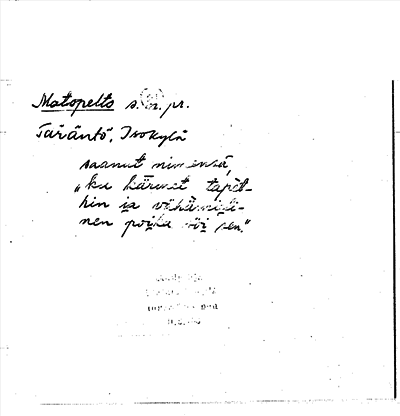 Matopelto s. n. pr.
Täräntö, Isokylä
saanut nimensä,
"ku kärmet tapet-
hin ja vähämieli-
nen poika söi sen."